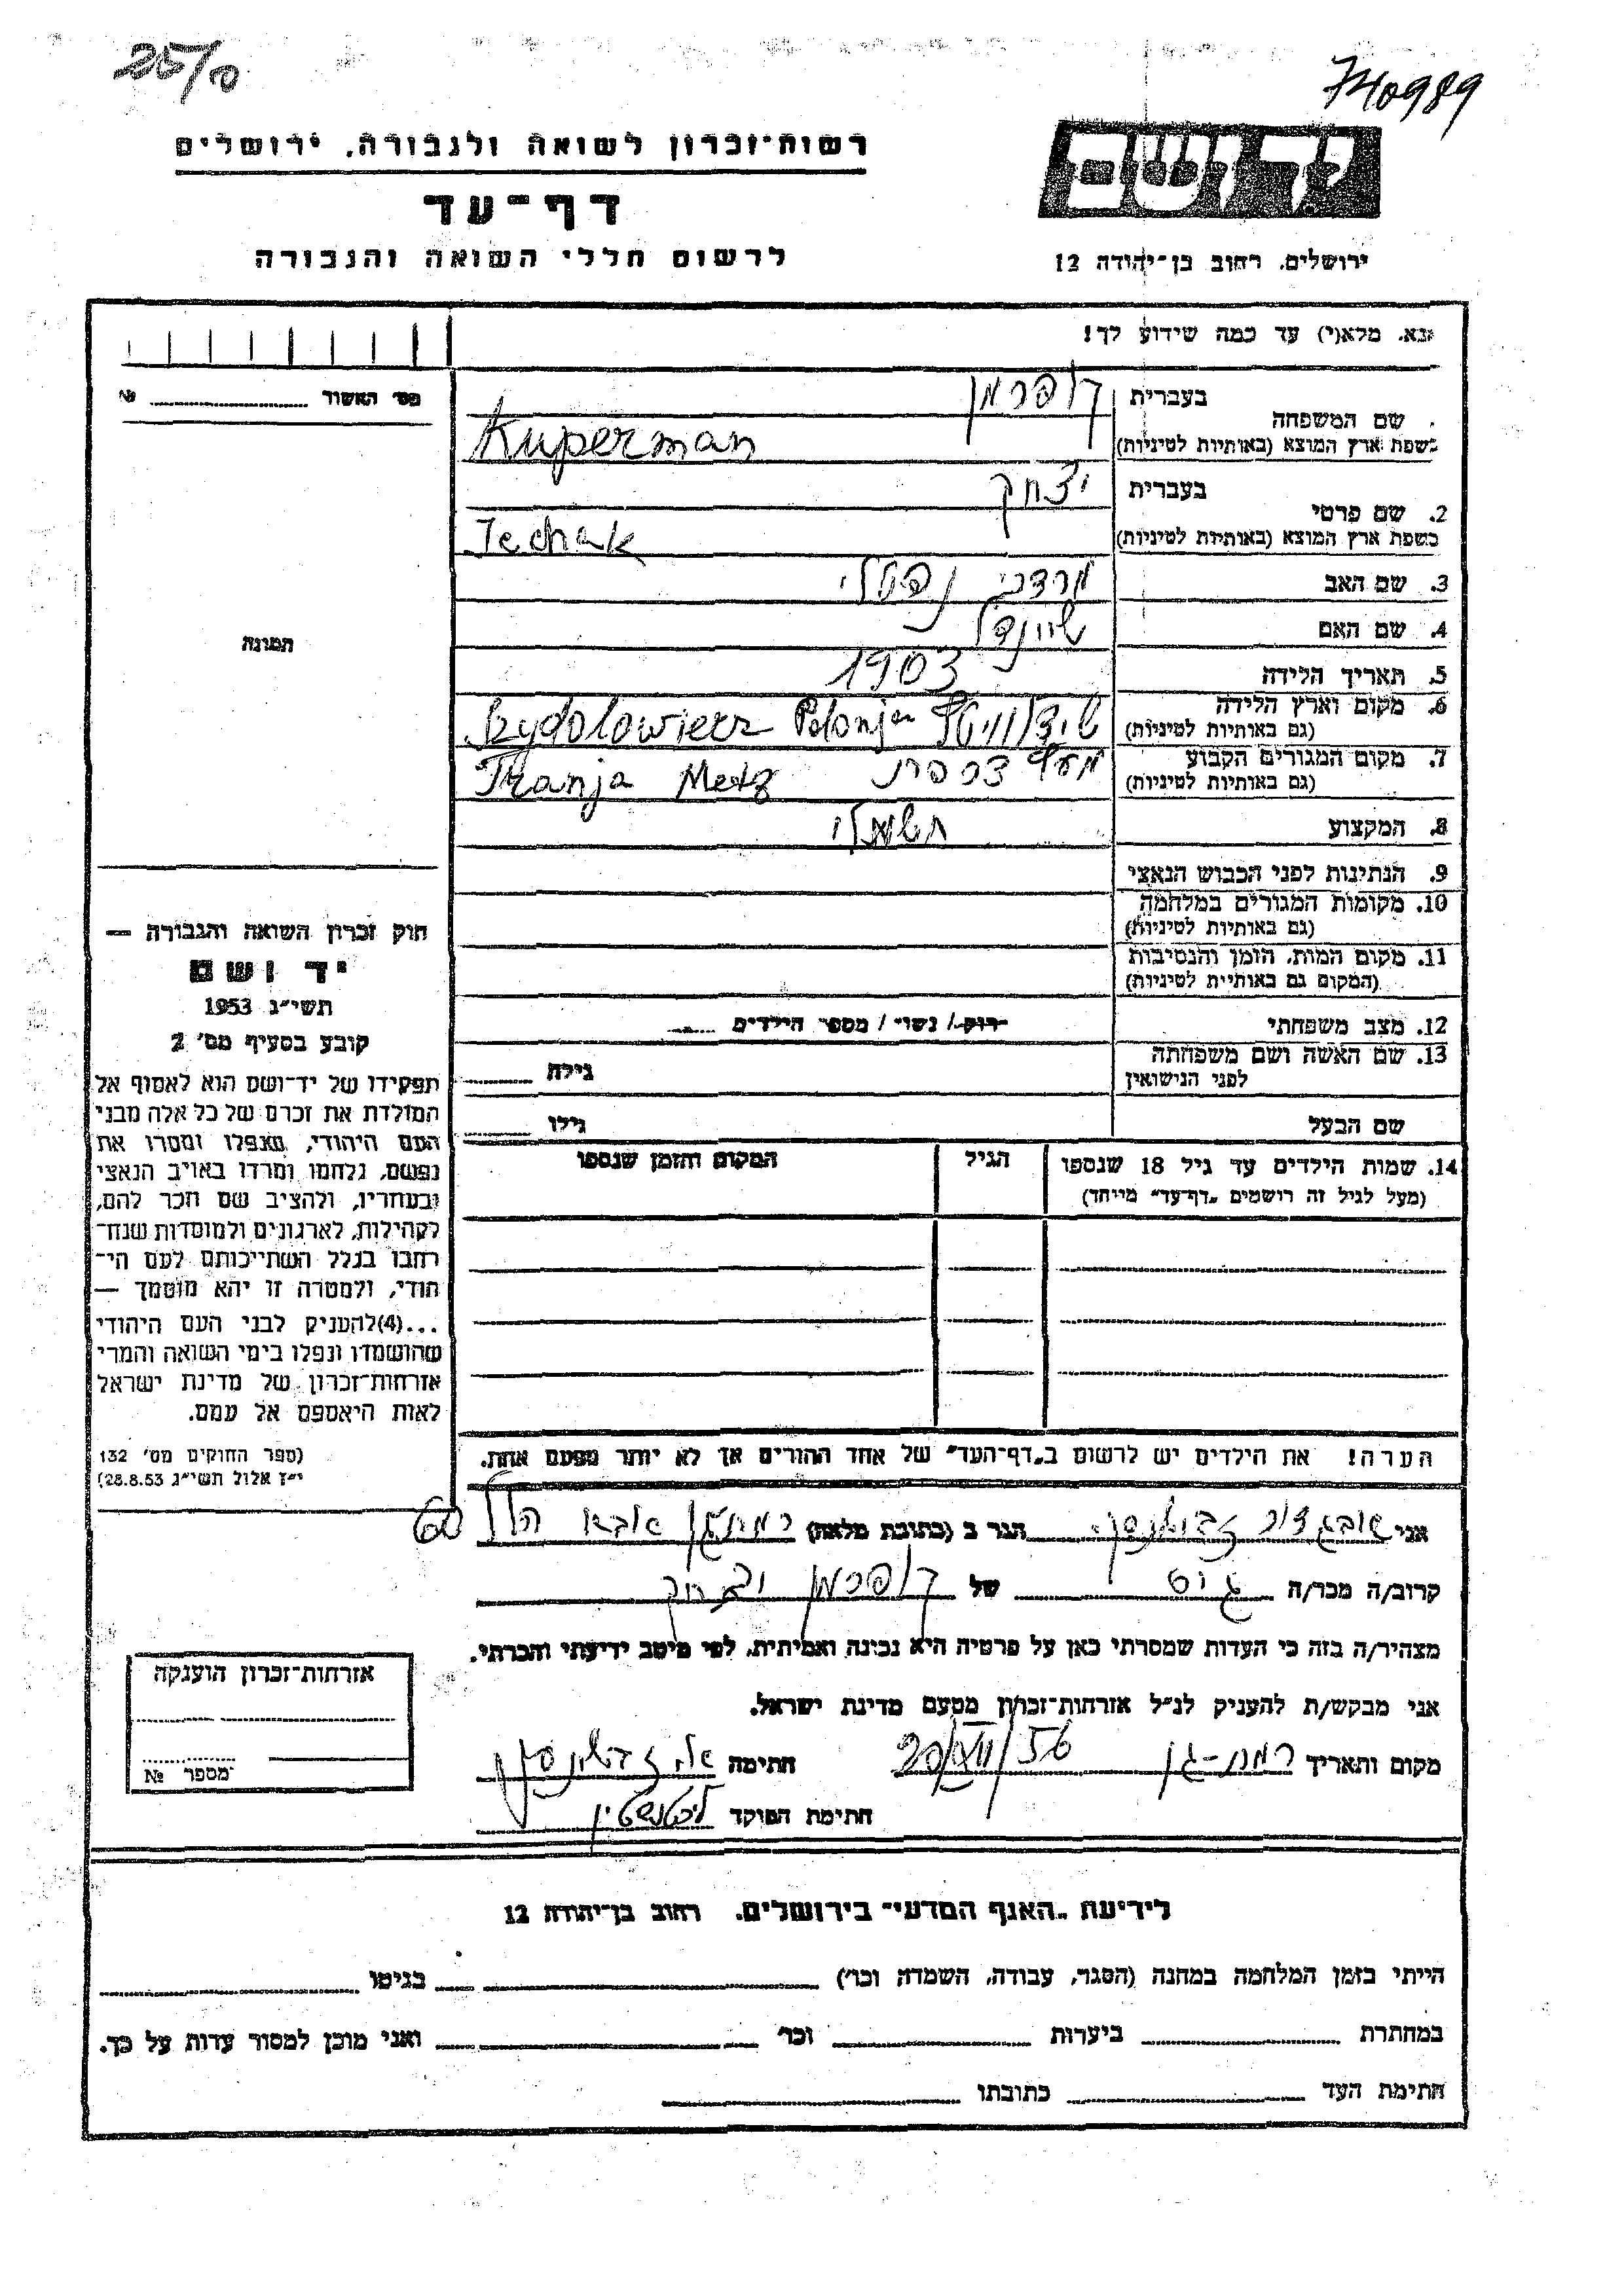 25/0
740989
רשות־זכרון לשואה ולגבורה, ירושלים
דף־עד
לרשום חללי השואה והגבורה
יד ושם
ירושלים, רחוב בן־יהודה 12
נא, מלא(י) עד כמה שידוע לך!
מס׳ האשור № 
שם המשפחה
בעברית קופרמן
בשפת ארץ המוצא (באותיות לטיניות) Kuperman
2. שם פרטי
בעברית יצחק
בשפת ארץ המוצא (באותיות לטיניות) Jechak
3. שם האב מרדכי נפתלי
4. שם האם שיינדל
5. תאריך הלידה 1903
6. מקום וארץ הלידה (גם באותיות לטיניות) Szydolowiecz Polonja
7. מקום המגורים הקבוע (גם באותיות לטיניות) צרפת Metz Franja
8. המקצוע חשמלי
9. הנתינות לפני הכבוש הנאצי
10. מקומות המגורים במלחמה
(גם באותיות לטיניות)
11. מקום המות, הזמן והנסיבות
(המקום גם באותיות לטיניות)
12. מצב משפחתי רווק / נשוי / מספר הילדים
13. שם האשה ושם משפחתה לפני הנישואין גילה
שם הבעל גילו
14. שמות הילדים עד גיל 18 שנספו
(מעל לגיל זה רושמים „דף־עד״ מייחד)
הגיל
המקום והזמן שנספו
הערה! את הילדים יש לרשום ב„דף־העד״ של אחד ההורים אך לא יותר מפעם אחת.
התמונה
חוק זכרון השואה והגבורה —
יד ושם
תשי״ג 1953
קובע בסעיף מס׳ 2
תפקידו של יד־ושם הוא לאסוף אל
המולדת את זכרם של כל אלה מבני
העם היהודי, שנפלו ומסרו את
נפשם, נלחמו ומרדו באויב הנאצי
ובעוזריו, ולהציב שם וזכר להם,
לקהילות, לארגונים ולמוסדות שנח־
רבו בגלל השתייכותם לעם הי־
הודי, ולמטרה זו יהא מוסמך —
...(4)להעניק לבני העם היהודי
שהושמדו ונפלו בימי השואה והמרי
אזרחות־זכרון של מדינת ישראל
לאות היאספם אל עמם.
(ספר החוקים מס׳ 132
י״ז אלול תשי״ג 28.8.53)
אני הגר ב (כתובת מלאה) רמת גן אבא הלל 60
קרוב/ה מכר/ה גיס של קופרמן יצחק
מצהיר/ה בזה כי העדות שמסרתי כאן על פרטיה היא נכונה ואמיתית, לפי מיטב ידיעתי והכרתי.
אני מבקש/ת להעניק לנ״ל אזרחות־זכרון מטעם מדינת ישראל.
מקום ותאריך רמת-גן חתימה
חתימת הפוקד ליכטנשטין
אזרחות־זכרון הוענקה
מספר №
לידיעת „האגף המדעי״ בירושלים, רחוב בן־יהודה 12
הייתי בזמן המלחמה במחנה (הסגר, עבודה, השמדה וכו׳) בגיטו
במחתרת ביערות וכו׳ ואני מוכן למסור עדות על כך.
חתימת העד כתובתו